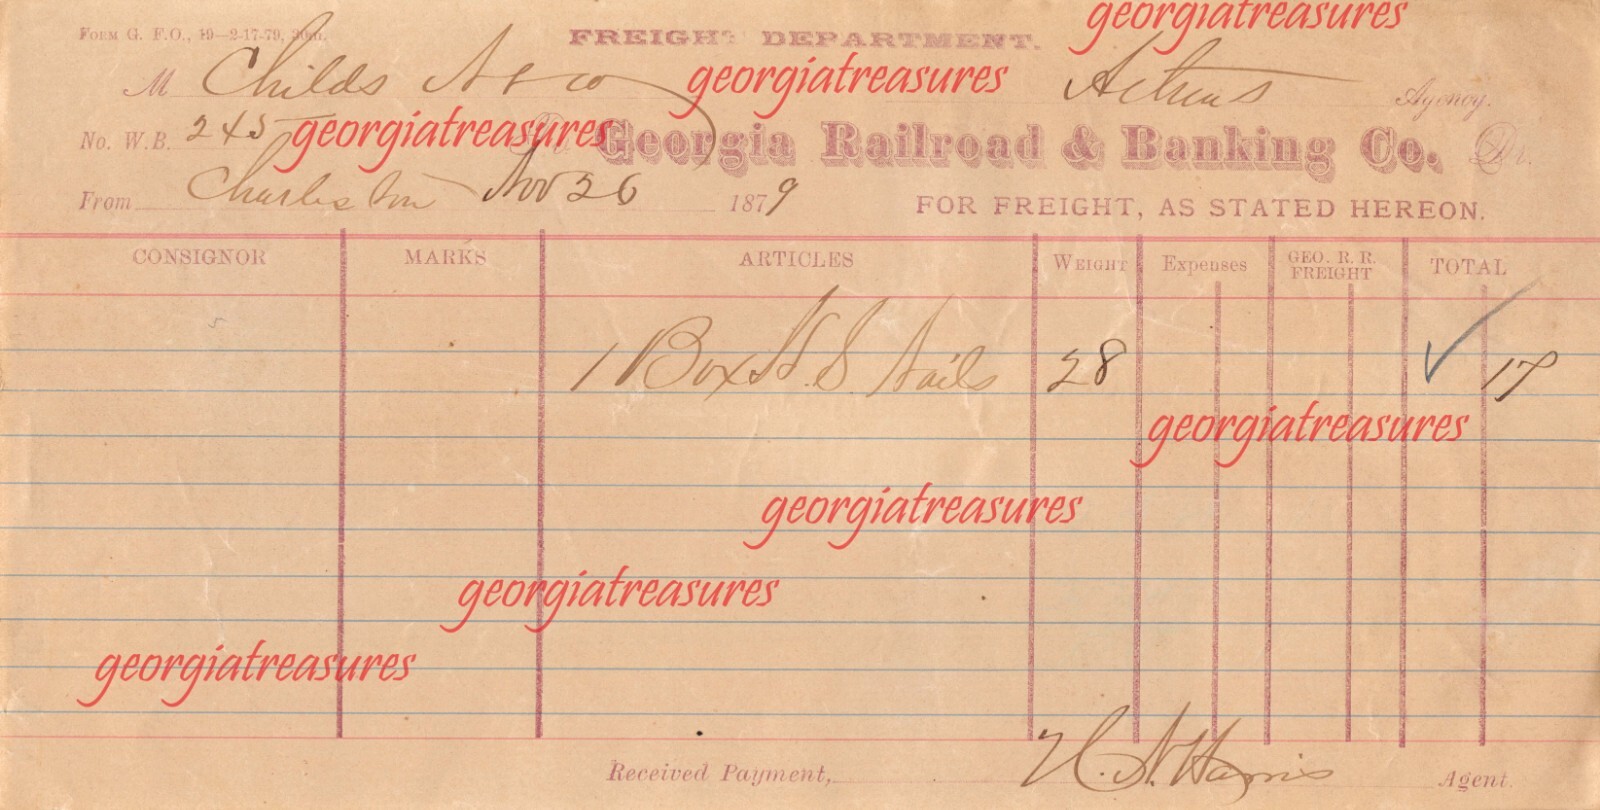 georgiatreasures
Form G. F.O., 19—2-17-79, 30m.
FREIGHT DEPARTMENT.
M Childs N & Co
georgiatreasures
Athens Agency.
No. W.B. 245
georgiatreasures
To Georgia Railroad & Banking Co. Dr.
From Charleston Nov 26 1879
FOR FREIGHT, AS STATED HEREON.
CONSIGNOR MARKS ARTICLES WEIGHT Expenses GEO. R. R. FREIGHT TOTAL
1 Box H. S Nails 28 17
georgiatreasures
georgiatreasures
georgiatreasures
georgiatreasures
Received Payment, Harris Agent.